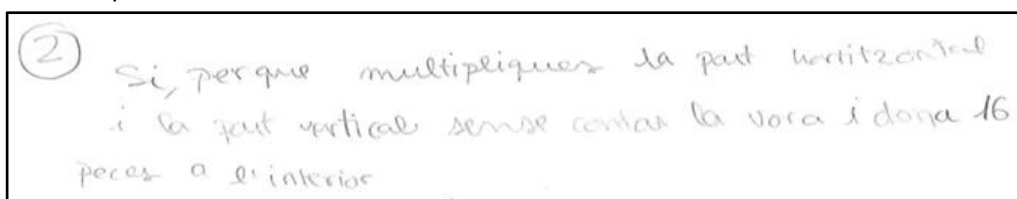 2
Si, perque multipliques la part horitzontal
i la part vertical sense contar la vora i dona 16
peces a l'interior